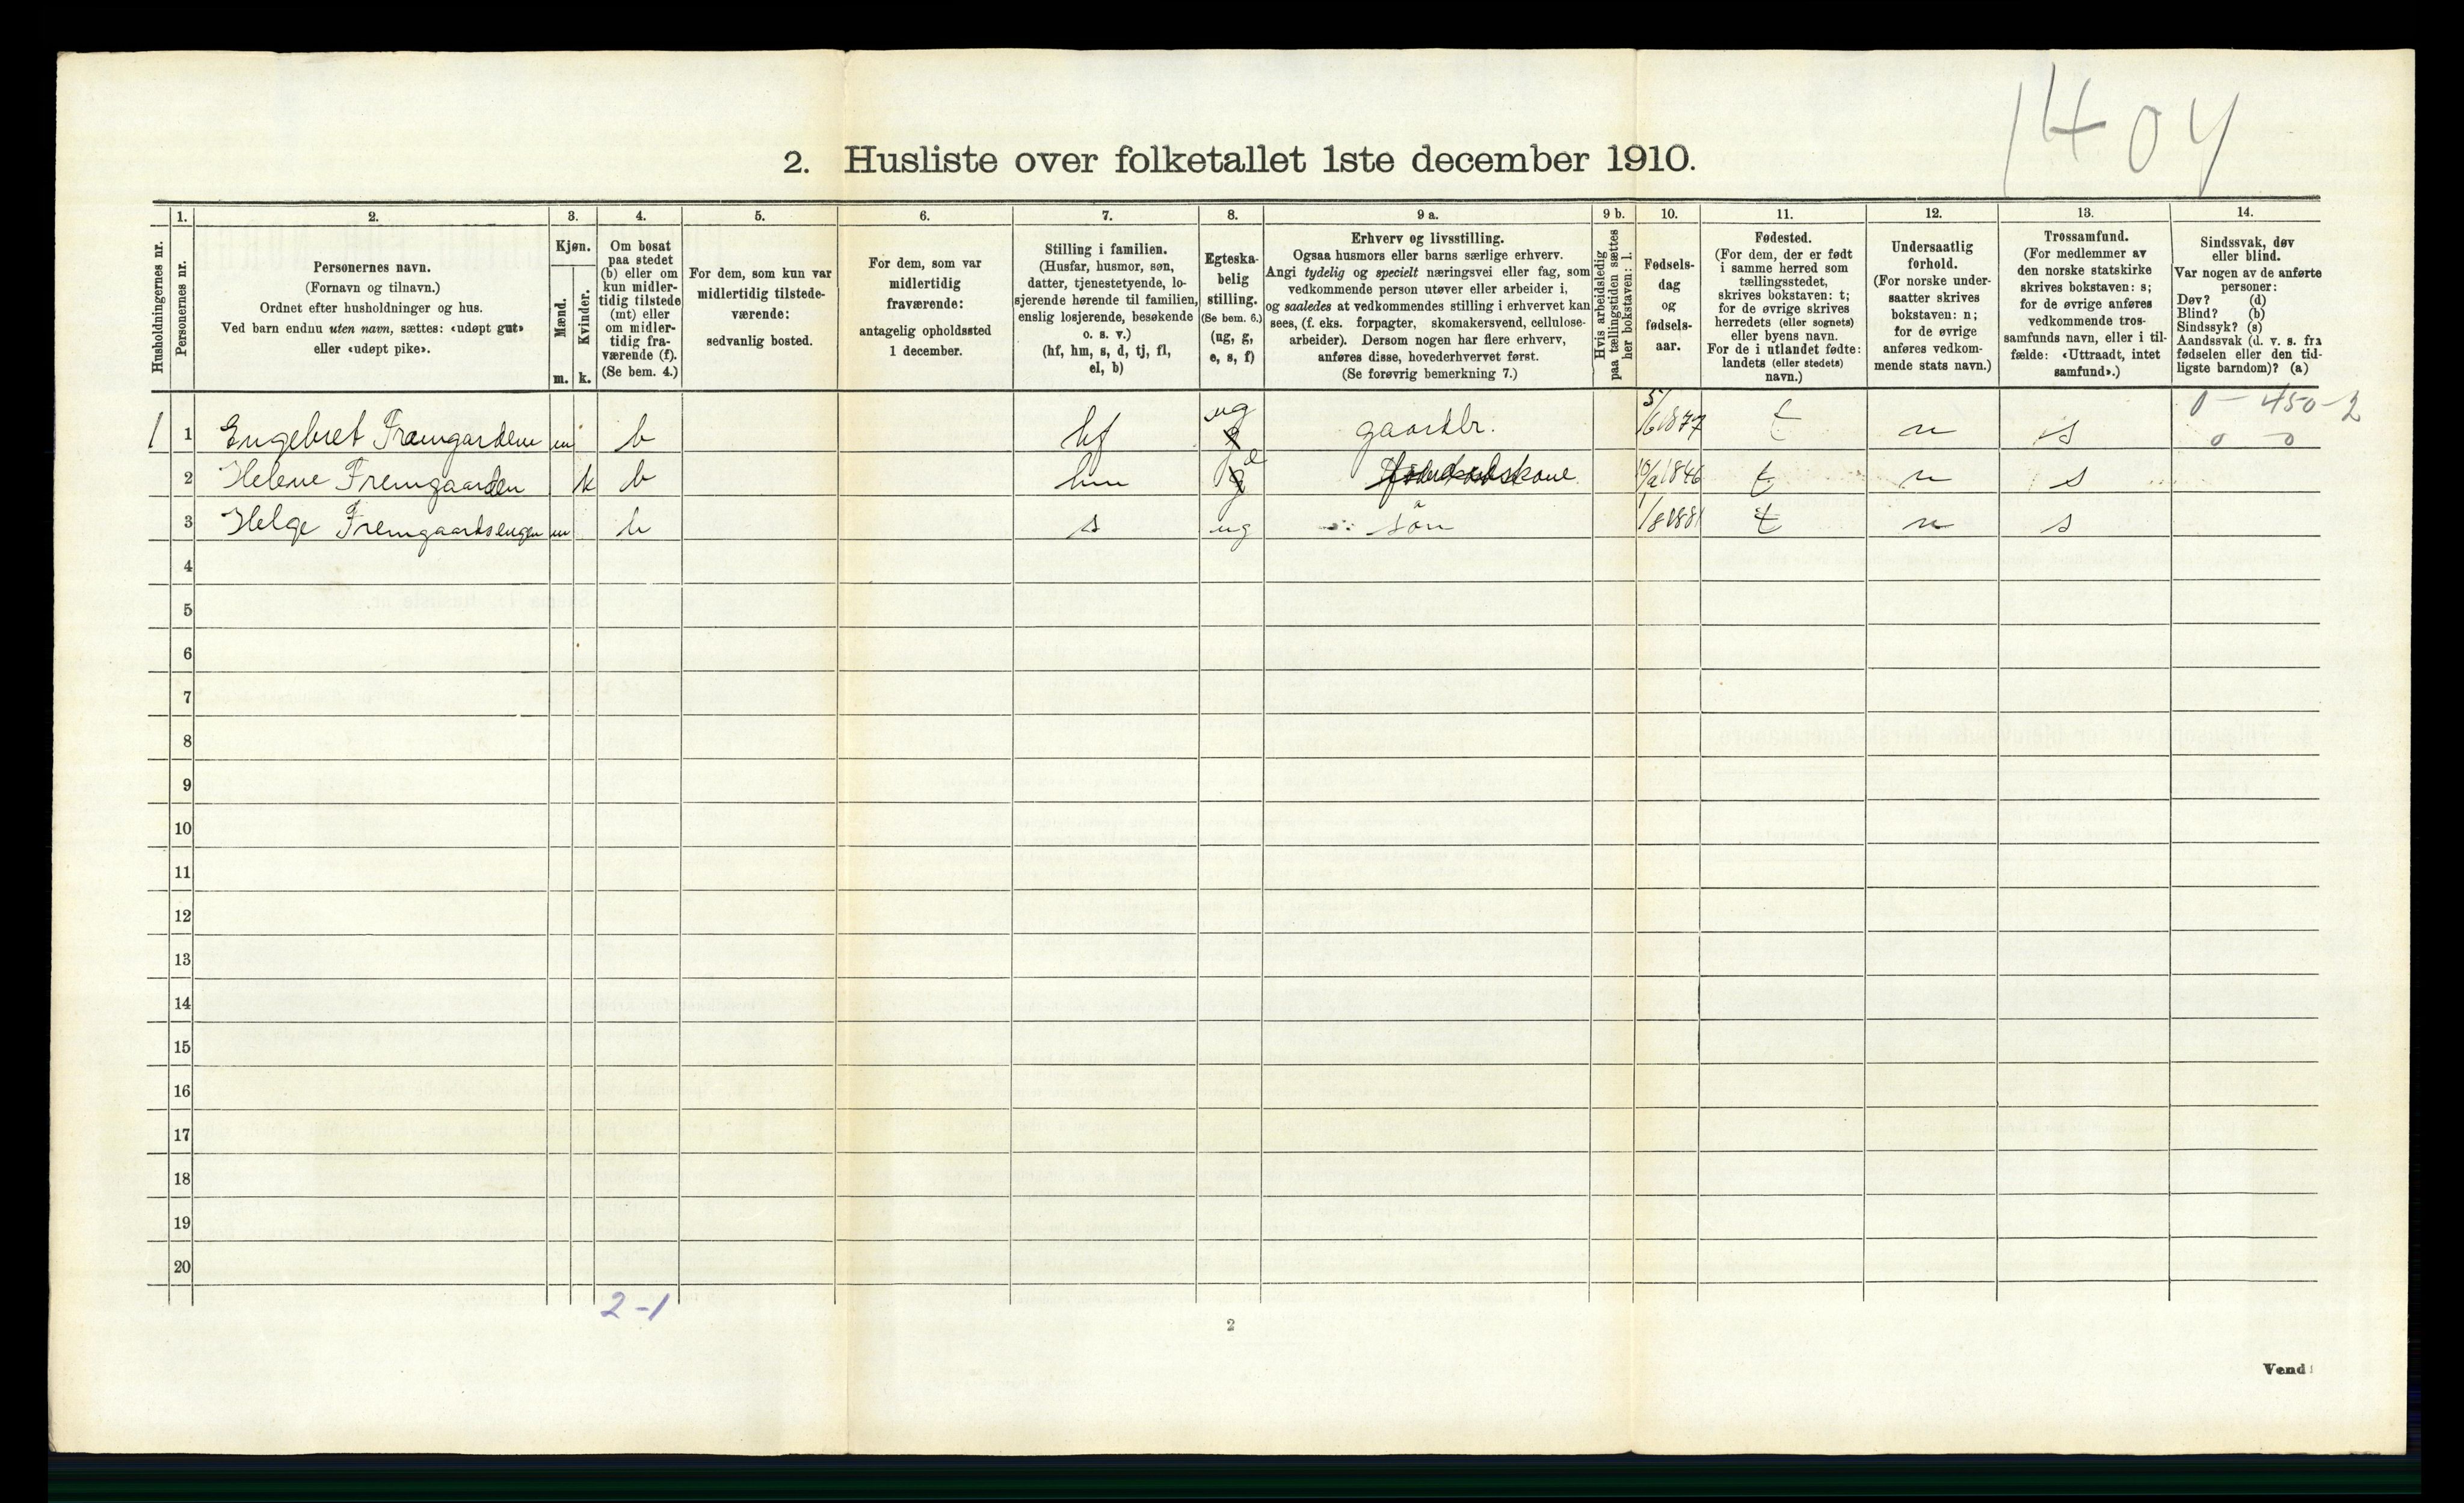 1404
2. Husliste over folketallet 1ste december 1910.
1. 2. 3. 4. 5. 6. 7. 8. 9 a. 9 b. 10. 11. 12. 13. 14.
Husholdningernes nr.
Personernes nr.
Personernes navn.
(Fornavn og tilnavn.)
Ordnet efter husholdninger og hus.
Ved barn endnu uten navn, sættes: «udøpt gut»
eller «udøpt pike».
Kjøn.
Mænd.
Kvinder.
m. k.
Om bosat
paa stedet
(b) eller om
kun midler-
tidig tilstede
(mt) eller
om midler-
tidig fra-
værende (f).
(Se bem. 4.)
For dem, som kun var
midlertidig tilstede-
værende:
sedvanlig bosted.
For dem, som var
midlertidig
fraværende:
antagelig opholdssted
1 december.
Stilling i familien.
(Husfar, husmor, søn,
datter, tjenestetyende, lo-
sjerende hørende til familien,
enslig losjerende, besøkende
o. s. v.)
(hf, hm, s, d, tj, fl,
el, b)
Egteska-
belig
stilling.
(Se bem. 6.)
(ug, g,
e, s, f)
Erhverv og livsstilling.
Ogsaa husmors eller barns særlige erhverv.
Angi tydelig og specielt næringsvei eller fag, som
vedkommende person utøver eller arbeider i,
og saaledes at vedkommendes stilling i erhvervet kan
sees, (f. eks. forpagter, skomakersvend, cellulose-
arbeider). Dersom nogen har flere erhverv,
anføres disse, hovederhvervet først.
(Se forøvrig bemerkning 7.)
Hvis arbeidsledig
paa tællingstiden sættes
her bokstaven: l.
Fødsels-
dag
og
fødsels-
aar.
Fødested.
(For dem, der er født
i samme herred som
tællingsstedet,
skrives bokstaven: t;
for de øvrige skrives
herredets (eller sognets)
eller byens navn.
For de i utlandet fødte:
landets (eller stedets)
navn.)
Undersaatlig
forhold.
(For norske under-
saatter skrives
bokstaven: n;
for de øvrige
anføres vedkom-
mende stats navn.)
Trossamfund.
(For medlemmer av
den norske statskirke
skrives bokstaven: s;
for de øvrige anføres
vedkommende tros-
samfunds navn, eller i til-
fælde: «Uttraadt, intet
samfund».)
Sindssvak, døv
eller blind.
Var nogen av de anførte
personer:
Døv? (d)
Blind? (b)
Sindssyk? (s)
Aandssvak (d. v. s. fra
fødselen eller den tid-
ligste barndom)? (a)
0 - 450 - 2
1 1 Engebret Fremgarden m b hf ug g gaardbr. 5/6 1877 t n s 0 0
2 Helene Fremgaarden k b hm e g 10/2 1846 t n s
3 Helge Fremgaardsengen m b s ug sön 1/8 1881 t n s
4
5
6
7
8
9
10
11
12
13
14
15
16
17
18
19
20
2-1
2
Vend!